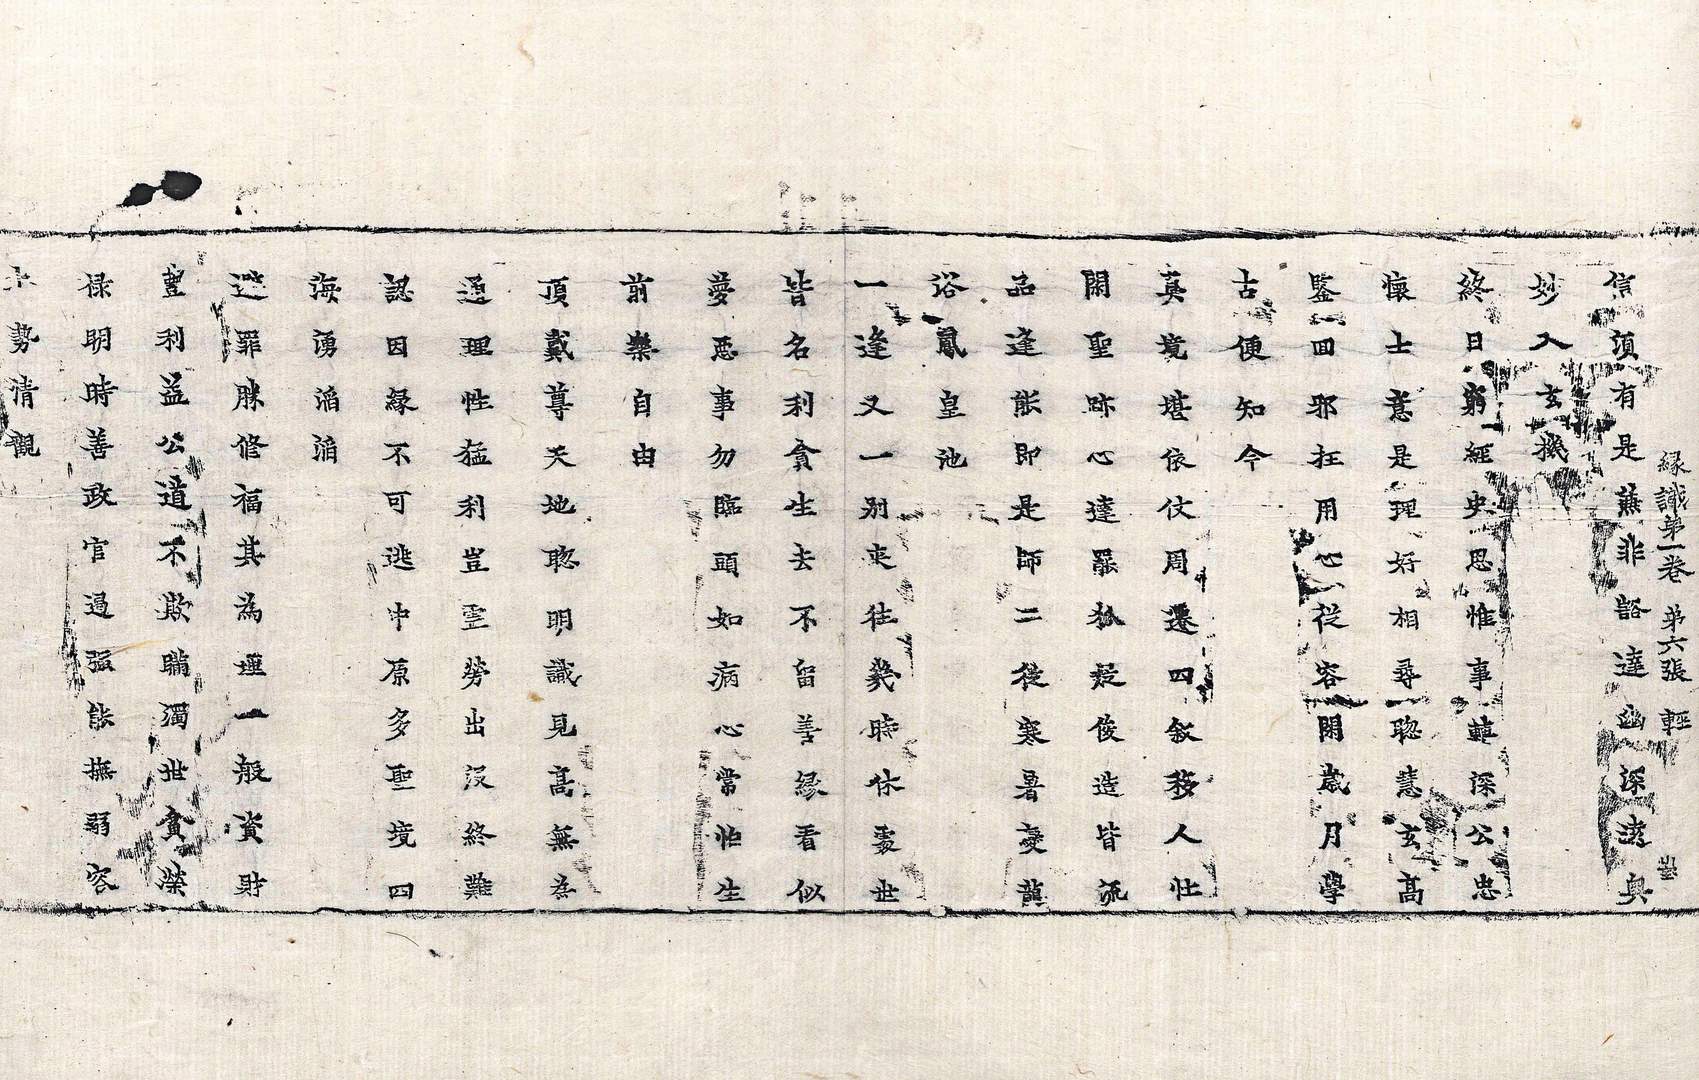 緣識第一卷 第六張 輕
信須有是兼非豁達幽深遠奧
妙入玄機
終日窮經史思惟事華深公忠
懷士意是理好相尋聰慧玄高
鑒回邪狂用心從容閑歲月學
古便知今
真境堪依仗周遷四敘移人世
閑聖跡心達羅狐疑俊造皆流
品逢能即是師二後寒暑變龍
浴鳳皇池
一逢又一別來往幾時休處世
皆名利貪生去不留善緣看似
夢惡事勿臨頭如病心常怕生
前樂自由
頂戴尊天地聦明識見高無為
通理性猛利豈靈勞出沒終難
認因緣不可逃中原多聖境四
海湧滔滔
避罪勝修福其為堙一般資財
豐利益公道不欺瞞濁世貪榮
祿明時善政官過強能撫弱容
勢清觀